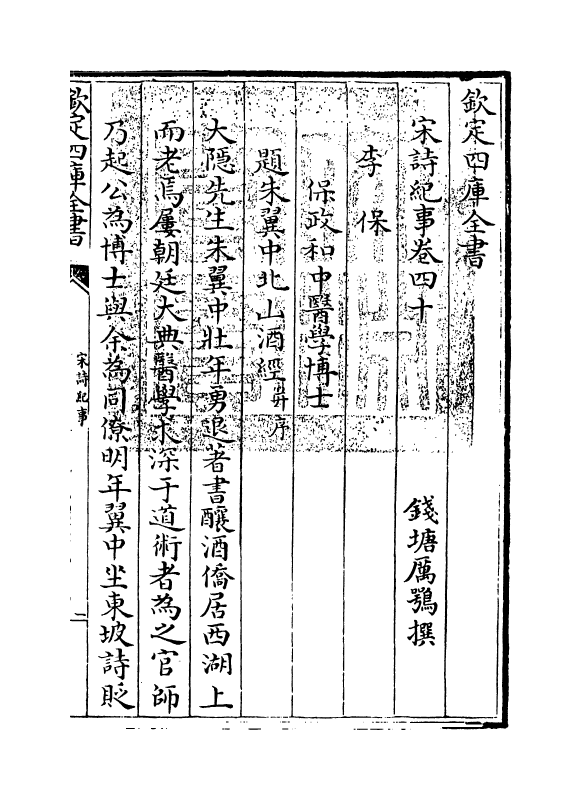 欽定四庫全書
宋詩紀事卷四十
錢塘厲鶚撰
李保
保政和中醫學博士
題朱翼中北山酒經并序
大隱先生朱翼中壯年勇退著書釀酒僑居西湖上
而老焉屢朝廷大興醫學求深于道術者為之官師
乃起公為博士與余為同僚明年翼中坐東坡詩貶
欽定四庫全書
宋詩紀事